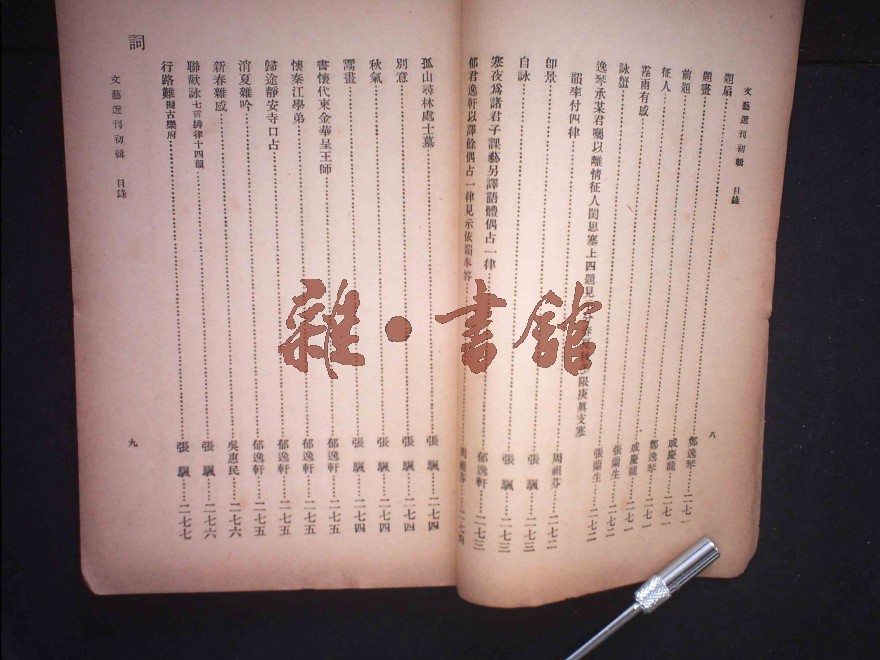 文藝選刊初輯　目錄
題扇……鄭逸琴……二七一
題畫……戚慶龍……二七一
前題……鄭逸琴……二七一
征人……戚慶龍……二七一
霪雨有感……張蘭生……二七二
詠蟹……張蘭生……二七二
逸琴承某君囑以離情征人閨思塞上四題見限庚真支塞
韻率付四律……周祖芬……二七二
卽景……張　颿……二七三
自詠……張　颿……二七三
寒夜爲諸君子課藝另譯語體偶占一律……郁逸軒……二七三
郁君逸軒以譯餘偶占一律見示依韻奉答……周祖芬……二七四
八
孤山尋林處士墓……張　颿……二七四
別意……張　颿……二七四
秋氣……張　颿……二七四
鬻畫……張　颿……二七四
書懷代柬金華呈王師……郁逸軒……二七五
懷秦江學弟……郁逸軒……二七五
歸途靜安寺口占……郁逸軒……二七五
消夏雜吟……郁逸軒……二七五
新春雜感……吳惠民……二七六
聯歡詠七言排律十四韻……張　颿……二七六
行路難擬古樂府……張　颿……二七七
詞
文藝選刊初輯　目錄
九
雜·書館